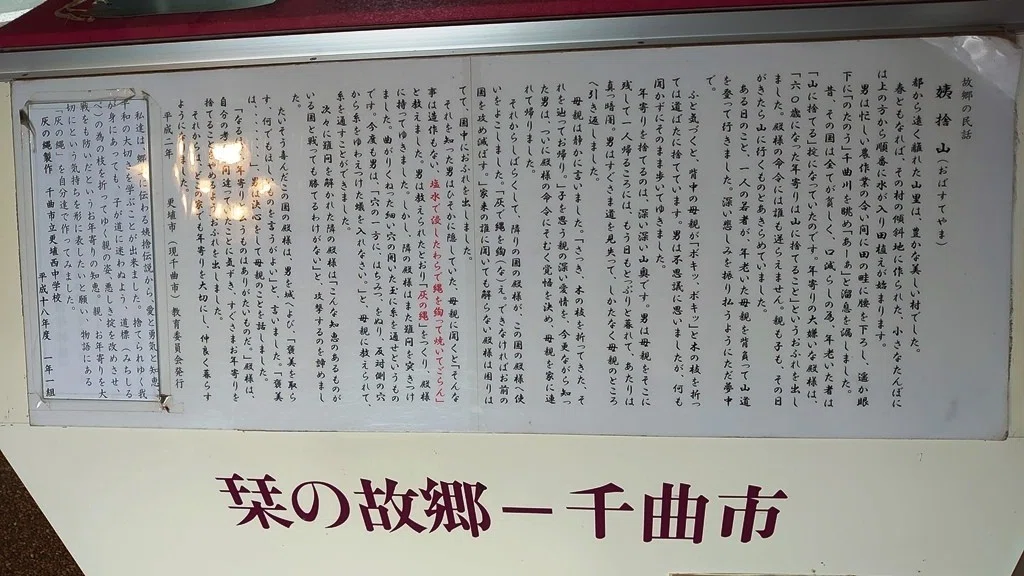 故郷の民話
姨捨山（おばすてやま）
都から遠く離れた山里は、豊かな美しい村でした。
春ともなれば、その村の傾斜地に作られた、小さなたんぼに
は上の方から順番に水が入り田植えが始まります。
男は忙しい農作業の合い間に田の畦に腰を下ろし、遥か眼
下に「つのたのう」千曲川を眺め「あーあ」と溜息を洩しました。
昔、その国は全てが貧しく、口減らしの為、年老いた者は
「山に捨てる」掟になっていたのです。年寄りの大嫌いな殿様は、
「六〇歳になった年寄りは山に捨てること」というおふれを出し
ました。殿様の命令には誰も逆らえません。親も子も、その日
がきたら山に行くものとあきらめていました。
ある日のこと、一人の若者が、年老いた母親を背負って山道
を登って行きました。男は、深い悲しみを振り払うようにただ夢中
で。
ふと気づくと、背中の母親が「ポキッ、ポキッ」と木の枝を折っ
ては道ばたに捨てています。男は不思議に思いましたが、何も
聞かずにそのまま歩いてゆきました。
年寄りを捨てるのは、深い深い山奥です。男は母親をそこに
残して一人帰るころには、もう日もとっぷりと暮れて、あたりは
真っ暗闇。男はすぐさま道を見失って、しかたなく母親のところ
へ引き返しました。
母親は静かに言いました。「さっき、木の枝を折ってきた、そ
れを辿ってお帰り。」子を思う親の深い愛情を、今更ながら知っ
た男は、ついに殿様の命令にそむく覚悟を決め、母親を家に連
れて帰りました。
それからしばらくして、隣りの国の殿様が、この国の殿様へ使
いをよこしました。「灰で縄を綯なえ。できなければお前の
国を攻め滅ぼす。」家来の誰に聞いても解らない。殿様は困りは
てて、国中におふれを出しました。
それを知った男はひそかに隠していた、母親に聞くと「そんな
事は造作もない。塩水で浸したわらで縄を綯って焼いてごらん」
と教えました。男は教えられたとおり「灰の縄」をつくり、殿様
に持ってゆきました。しかし、隣の殿様はまた難題を突きつけ
ました。曲がりくねった細い穴の開いた玉に糸を通せというもの
です。今度も男は、「穴の一方に、はちみつをぬり、反対側の穴
から糸をゆわえつけた蟻を入れなさい」と、母親に教えられて、
糸を通すことができました。
次々に難問を解かれた隣の殿様は「こんな知恵のあるものが
いる国と戦っても勝てるわけがない」と、攻撃するのを諦めまし
た。
たいそう喜んだこの国の殿様は、男を城へよび、「褒美を取ら
す。何でもほしいものを言うがよい」と、言いました。「褒美
は…」男は決心をして母親のことを話しました。
「なるほど年寄りというものはありがたいものだ。」殿様は、
自分の考えが間違っていたことに気づき、すぐさまお年寄りを
捨てることをやめるようおふれを出しました。
それからは、どこの家でも年寄りを大切にし、仲良く暮らす
ようになりました。
平成二年　更埴市（現千曲市）教育委員会発行
私達は、郷土に伝わる姨捨伝説から愛と勇気と知恵
平和の大切さを学ぶことが出来ました。捨てられゆく我
が身にあっても、子が道に迷わぬよう、道標（みちしる
べ）の為の枝を折ってゆく親の姿、悪しき掟を改めさせ、
戦をも防いだというお年寄りの知恵。親、お年寄りを大
切にという気持ちを形に表したいと願い、物語にある
「灰の縄」を自分達で作ってみました。
灰の縄製作　千曲市立更埴西中学校
平成十八年度　一年一組
栞の故郷－千曲市